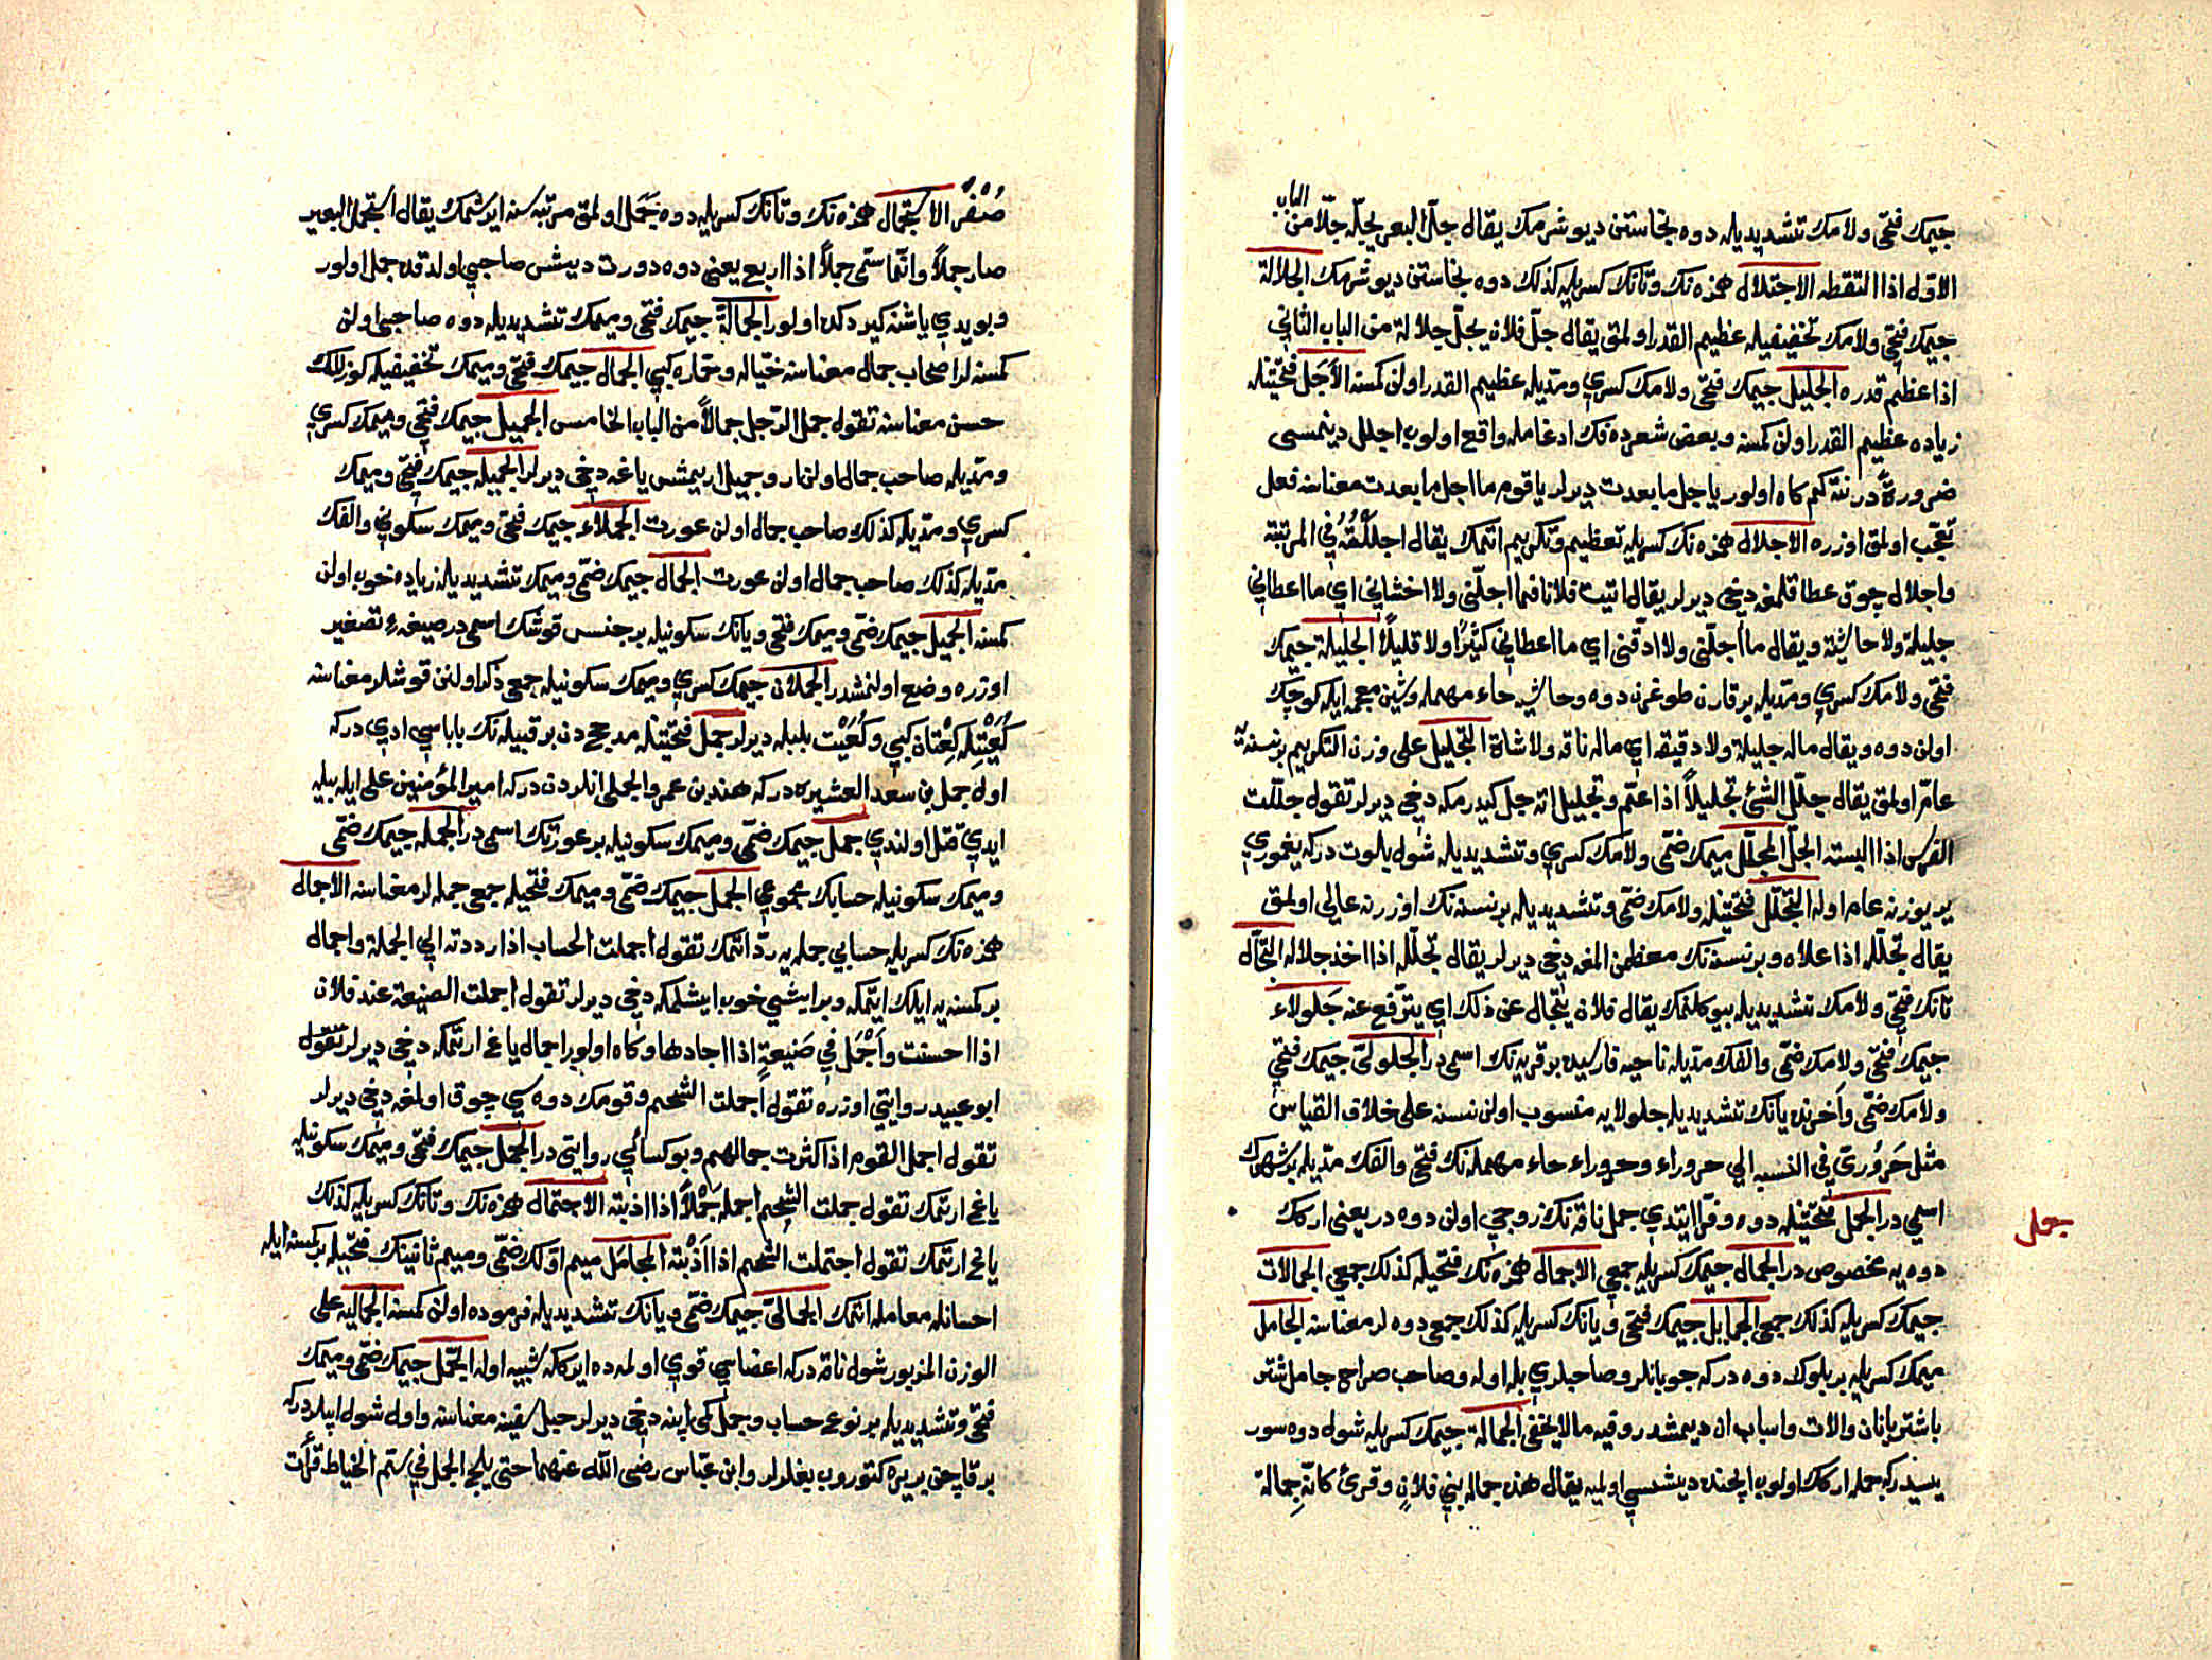 جيمك فتحى ولامك تشديديله دوه نجاستن ديوشرمك يقال جلّ البعر يجلّه جلّا من الباب
الاول اذا التقطه الاجتلال همزه نك وتانك كسريله كذلك دوه نجاستن ديوشرمك الجلالة
جيمك فتحى ولامك تخفيفيله عظيم القدر اولمق يقال جلّ فلان يجلّ جلالة من الباب الثاني
اذا عظم قدره الجليل جيمك فتحى ولامك كسري ومدّيله عظيم القدر اولن كمسنه الاجلّ فتحتينله
زياده عظيم القدر اولن كمسنه وبعض شعرده فك ادغامله واقع اولوب اجلل دينمسى
ضرورةً در نته كم كاه اولور يا جل ما بعدت ديرلر يا قوم ما اجل ما بعدت معناسنه فعل
تعجّب اولمق اوزره الاجلال همزه نك كسريله تعظيم وتكريم اتمك يقال اجللته في المرتبة
واجلال چوق عطا قلمغه دخى ديرلر يقال اتيت فلانا فما اجلّني ولا اخشاني اي ما اعطاني
جليلة ولا حاشية ويقال ما اجلّني ولا ادقّني اي ما اعطاني كثيرًا ولا قليلًا الجليلة جيمك
فتحى ولامك كسري ومدّيله بر قارن طوغرن دوه وحاشيه حاء مهمله وشين معجمه ايله كوچك
اولن دوه ويقال ماله جليلة ولا دقيقه اي ماله ناقه ولا شاة التجليل على وزن التكريم بر نسنه
عامّ اولمق يقال جلّل الشئ تجليلاً اذا عمّ وتجليل اته جل كيدرمكه دخى ديرلر تقول جلّلت
الفرس اذا البسته الجلّ المجلّل ميمك ضمّى ولامك كسري وتشديديله شول بلوت دركه يغموري
ير يوزنه عام اوله التجلّل فتحتينله ولامك ضمّى وتشديديله بر نسنه نك اوزرنه عالى اولمق
يقال تجلّله اذا علاه وبر نسنه نك معظمن المغه دخى ديرلر يقال تجلّله اذا اخذ جلاله التجالّ
تانك فتحى ولامك تشديديله بيوكلنمك يقال فلان يتجالّ عن ذلك اي يترفّع عنه جلولاء
جيمك فتحى ولامك ضمّى والفك مدّيله ناحيه فارسيده بر قريه نك اسمى در الجلوليّ جيمك فتحي
ولامك ضمّى وآخرنده يانك تشديديله جلولايه منسوب اولن نسنه على خلاف القياس
مثل حَروُرىّ في النسبه الي حروراء وحروراء حاء مهمله نك فتحى والفك مدّيله بر شهرك
اسمي در الجمل فتحتينله دوه وفرّا ايتدي جمل ناقه نك زوجي اولن دوه در يعنى اركك
جمل
دوه يه مخصوص در الجمال جيمك كسريله جمعى الاجمال همزه نك فتحيله كذلك جمعى الجمالات
جيمك كسريله كذلك جمعى الجمايل جيمك فتحى ويانك كسريله كذلك جمعى دوه لر معناسنه الجامل
ميمك كسريله بر بلوك دوه دركه چوبانلر وصاحبلرى بله اوله وصاحب صراح جامل شتر
باشتربانان والات واسباب ان ديمشدر وفيه ما لا يخفى الجمالة جيمك كسريله شول دوه سور
يسيدركه جمله اركك اولوب ايچنده ديشيسى اوليه يقال هذه جمالة بني فلانٍ وقرئ كانه جمالة
صُفْرٌ الاستجمال همزه نك وتانك كسريله دوه جَمَل اولمق مرتبه سنه ايرشمك يقال استجمل البعير
صار جملاً وانما سمّى جملاً اذا اربع يعنى دوه دورت ديشش صاحبي اولدقده جمل اولور
وبو يدي ياشنه كيردكده اولور الجمالة جيمك فتحى وميمك تشديديله دوه صاحبى اولن
كمسنه لر اصحاب جمال معناسنه خيّاله وحمّاره كبي الجمال جيمك فتحى وميمك تخفيفيله كوزللك
حسن معناسنه تقول جمل الرّجل جمالاً من الباب الخامس الجميل جيمك فتحى وميمك كسري
ومدّيله صاحب جمال اولن ار وجميل اريمش ياغه دخى ديرلر الجميله جيمك فتحى وميمك
كسري ومدّيله كذلك صاحب جمال اولن عورت الجملاء جيمك فتحى وميمك سكوني والفك
مدّيله كذلك صاحب جمال اولن عورت الجمال جيمك ضمّى وميمك تشديديله زياده خوب اولن
كمسنه الجميل جيمك ضمّى وميمك فتحى ويانك سكونيله بر جنس قوشك اسمى در صيغهء تصغير
اوزره وضع اولنمشدر الجملان جيمك كسري وميمك سكونيله جمعى ذكر اولنن قوشلر معناسنه
كُعَيْتله كِعْتان كبي وكُعَيْت بلبله ديرلر جمل فتحتينله مدحج دن بر قبيله نك باباسي ادي دركه
اول جمل بن سعد العشيره دركه هند بن عمرو الجملى انلردن دركه امير المؤمنين على ايله بيله
ايدي قتل اولندي جمل جيمك ضمّى وميمك سكونيله بر عورتك اسمى در الجمله جيمك ضمّى
وميمك سكونيله حسابك مجموعي الجمل جيمك ضمّى وميمك فتحيله جمعى جمله لر معناسنه الاجمال
همزه نك كسريله حسابي جمله يه ردّ اتمك تقول اجملت الحساب اذا رددته الي الجملة واجمال
بر كمسنه يه ايلك ايتمكه وبر ايشي خوب ايشلمكه دخى ديرلر تقول اجملت الصنيعة عند فلان
اذا احسنت وأَجْمَل في صَنيعةٍ اذا اجادها وكاه اولور اجمال ياغ ارتمكه دخى ديرلر تقول
ابو عبيد روايتى اوزره تقول اجملت الشحم وقومك دوه سي چوق اولمغه دخى ديرلر
تقول اجمل القوم اذا كثرت جمالهم وبو كسائي روايتى در الجمل جيمك فتحى وميمك سكونيله
ياغ ارتمك تقول جملت الشحم اجمله جَمْلاً اذا اذبته الاجتمال همزه نك وتانك كسريله كذلك
ياغ ارتمك تقول اجتملت الشحم اذا اَذَبْته المجامَل ميم اوّلك ضمّى وميم ثانينك فتحيله بر كمسنه ايله
احسانله معامله اتمك الجماليّ جيمك ضمّى ويانك تشديديله فرموده اولن كمسنه الجماليه على
الوزن المزبور شول ناقه دركه اعضاسي قوي اولمده ايركه شبيه اوله الجُمّل جيمك ضمّى وميمك
فتحى وتشديديله بر نوع حساب وجمل كمى ايپنه دخى ديرلر حبل سفينه معناسنه واول شول ايپلر دركه
بر قاچن بر يره كتوروب بغلرلر وابن عبّاس رضى الله عنهما حتى يلج الجمل في سمّ الخياط قرأت